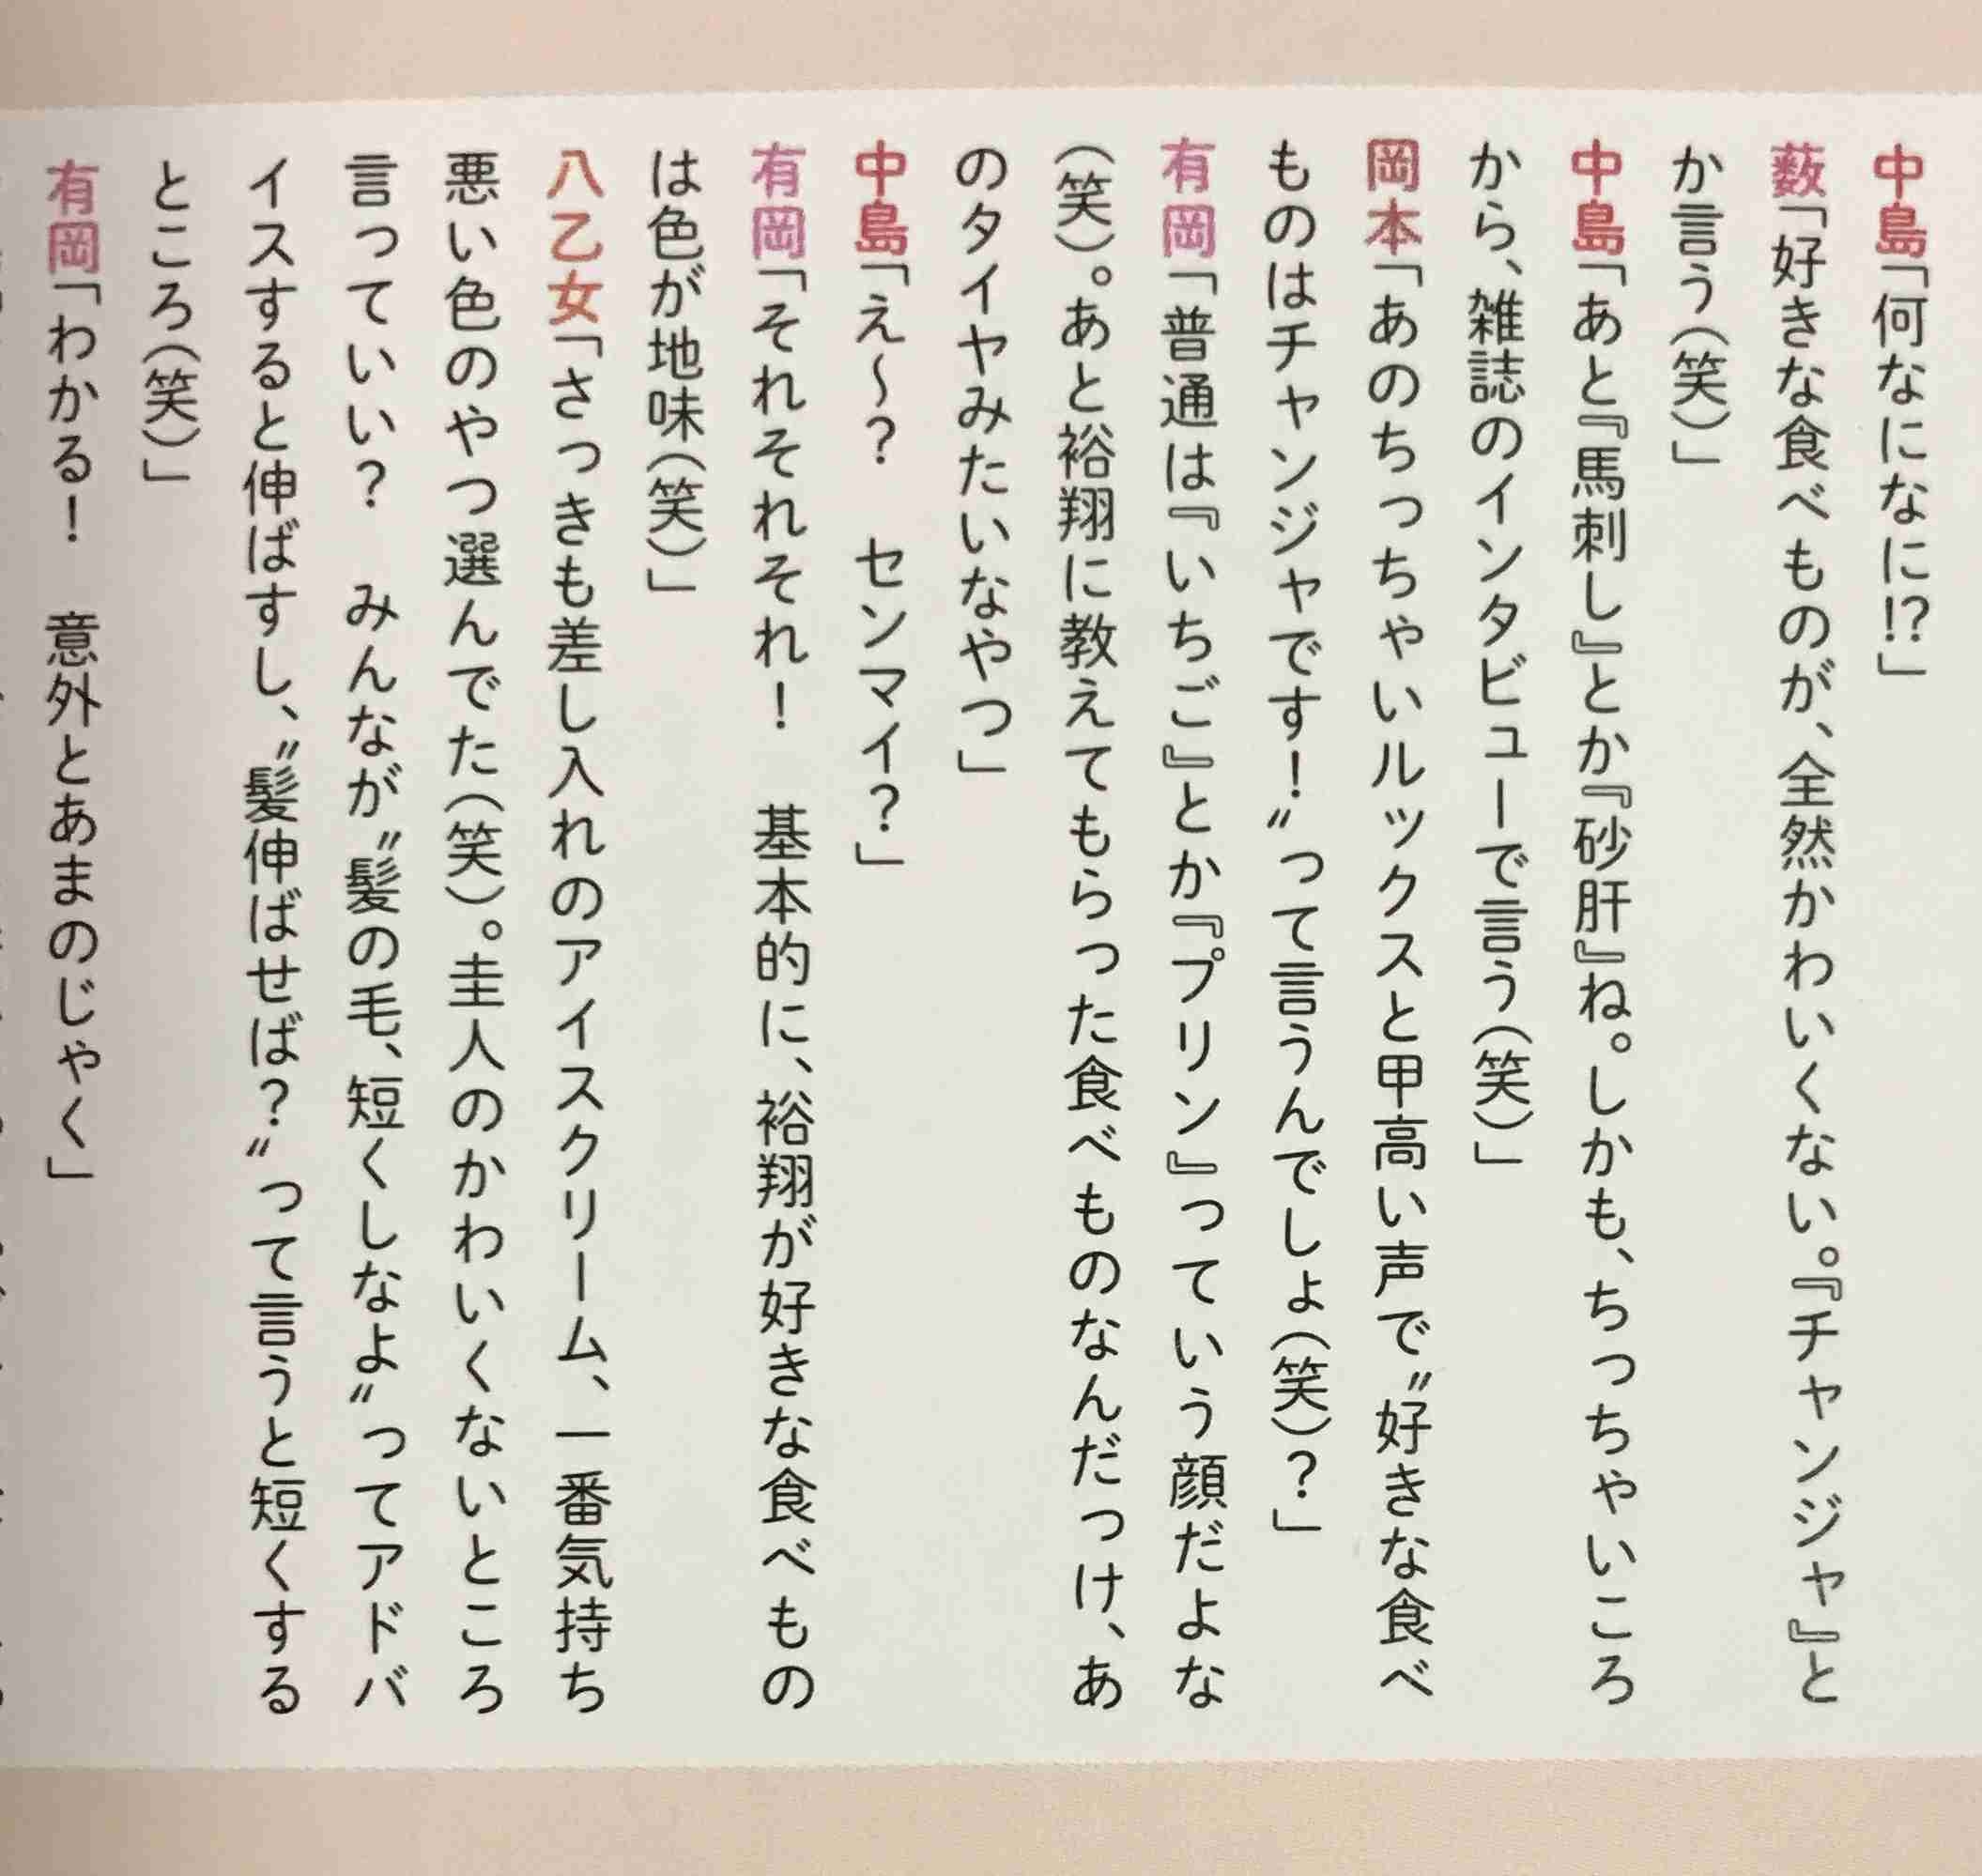 中島「何なになに!?」
薮「好きな食べものが、全然かわいくない。『チャンジャ』と
か言う(笑)」
中島「あと『馬刺し』とか『砂肝』ね。しかも、ちっちゃいころ
から、雑誌のインタビューで言う(笑)」
岡本「あのちっちゃいルックスと甲高い声で〝好きな食べ
ものはチャンジャです!〟って言うんでしょ(笑)?」
有岡「普通は『いちご』とか『プリン』っていう顔だよな
(笑)。あと裕翔に教えてもらった食べものなんだっけ、あ
のタイヤみたいなやつ」
中島「え〜? センマイ?」
有岡「それそれそれ! 基本的に、裕翔が好きな食べもの
は色が地味(笑)」
八乙女「さっきも差し入れのアイスクリーム、一番気持ち
悪い色のやつ選んでた(笑)。圭人のかわいくないところ
言っていい? みんなが〝髪の毛、短くしなよ〟ってアドバ
イスすると伸ばすし、〝髪伸ばせば?〟って言うと短くする
ところ(笑)」
有岡「わかる! 意外とあまのじゃく」